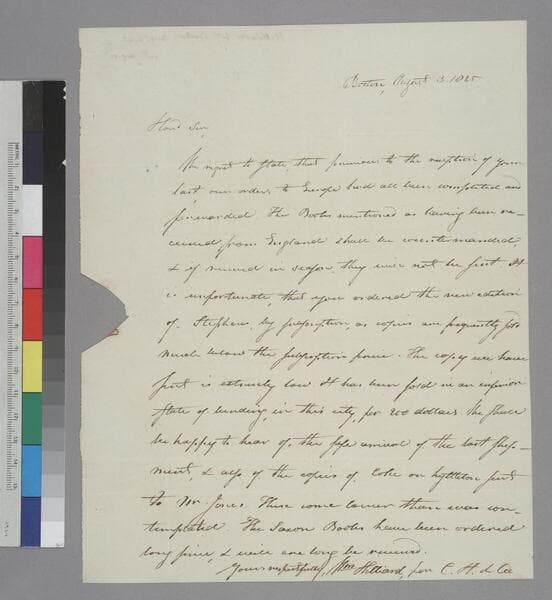 Boston, August 3. 1825
Hond Sir,
We regret to state, that previous to the reception of your
last our orders to Europe had all been completed and
forwarded. The Books mentioned as having been re-
ceived from England shall be countermanded,
& if received in season they will not be sent. It
is unfortunate, that you ordered the new edition
of Stephens by subscription as copies are frequently sold
much below the subscription price. The copy we have
sent is extremely low. It has been sold in an inferior
state of binding, in this city, for 200 dollars. We shall
be happy to hear of the safe arrival of the last ship-
ment, & also of the copies of Coke on Lyttleton sent
to Mr. Jones. These come lower than was con-
templated. The Saxon Books have been ordered
long since, & will ere long be received.
Yours respectfully, Wm Hilliard, for C. H. & Co